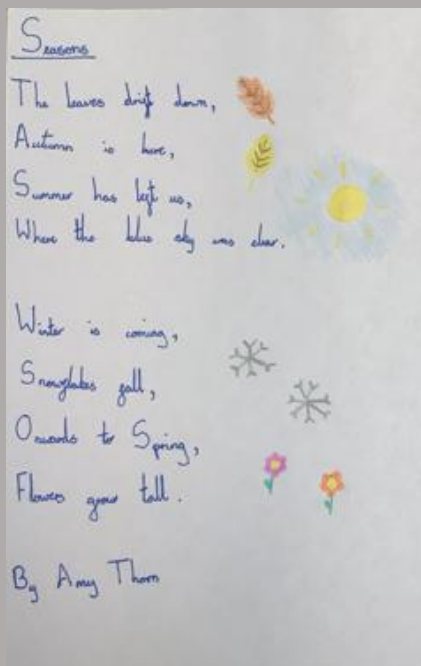 Seasons
The leaves drift down,
Autumn is here,
Summer has left us,
Where the blue sky was clear.
Winter is coming,
Snowflakes fall,
Onwards to Spring,
Flowers grow tall.
By Amy Thorn